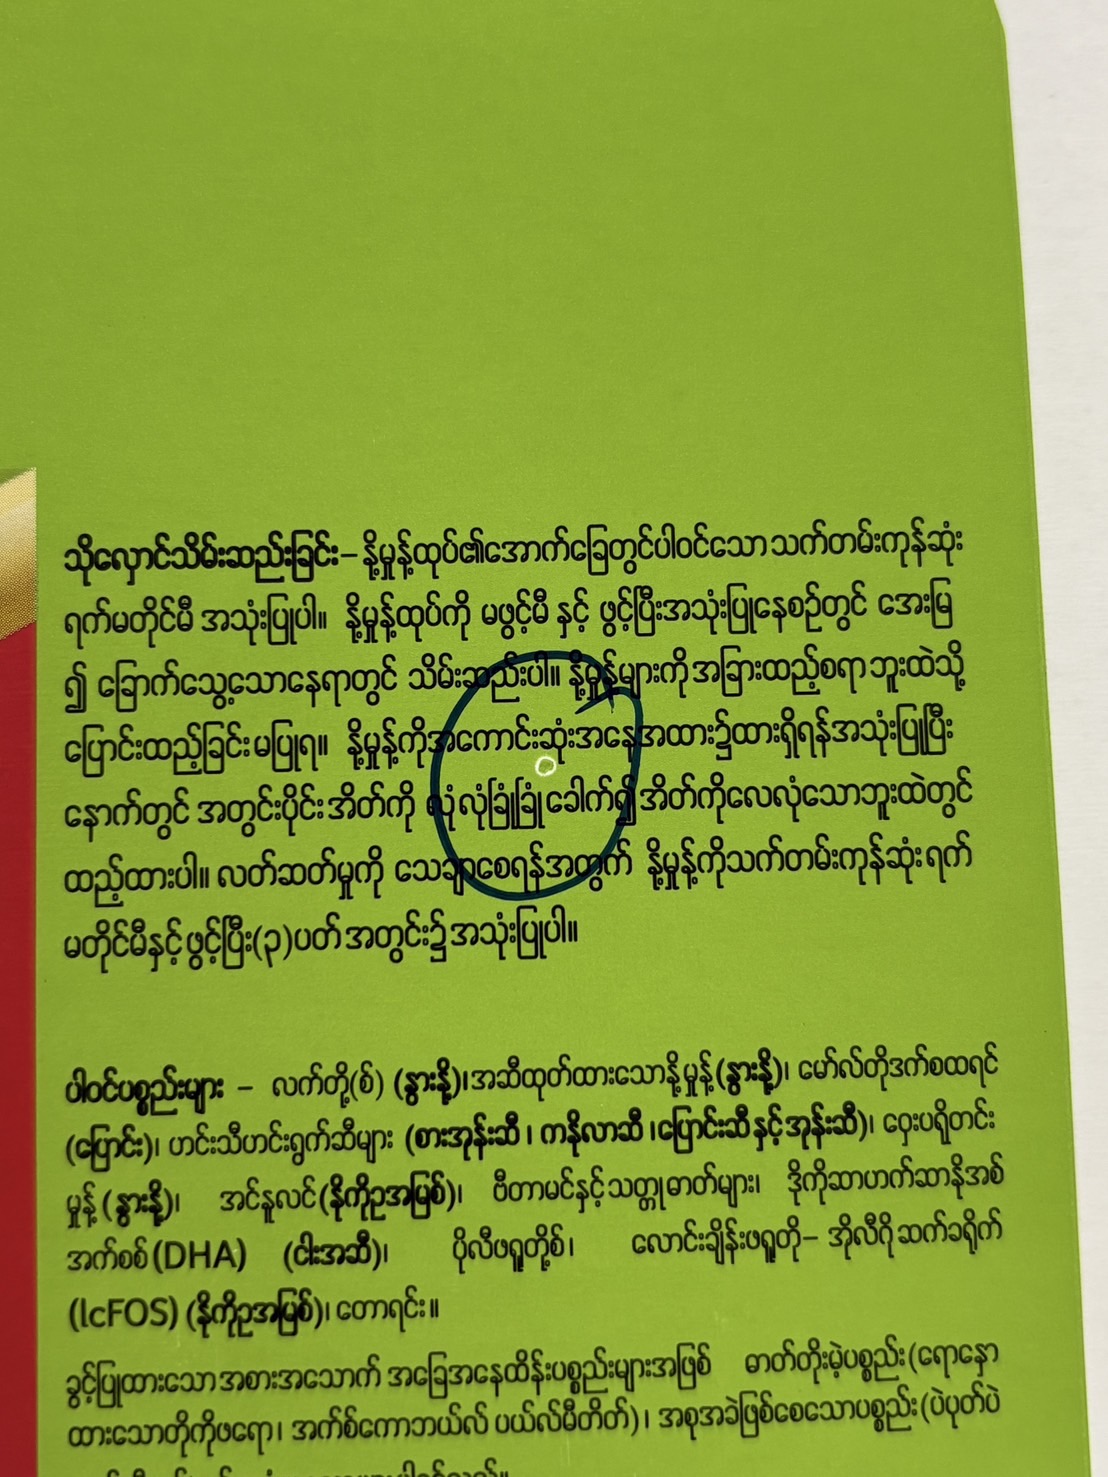 သိုလှောင်သိမ်းဆည်းခြင်း – နို့မှုန့်ထုပ်၏အောက်ခြေတွင်ပါဝင်သော သက်တမ်းကုန်ဆုံး
ရက်မတိုင်မီ အသုံးပြုပါ။ နို့မှုန့်ထုပ်ကို မဖွင့်မီ နှင့် ဖွင့်ပြီးအသုံးပြုနေစဉ်တွင် အေးမြ
၍ ခြောက်သွေ့သောနေရာတွင် သိမ်းဆည်းပါ။ နို့မှုန့်များကို အခြားထည့်စရာ ဘူးထဲသို့
ပြောင်းထည့်ခြင်း မပြုရ။ နို့မှုန့်ကိုအကောင်းဆုံးအနေအထား၌ထားရှိရန်အသုံးပြုပြီး
နောက်တွင် အတွင်းပိုင်းအိတ်ကို လုံလုံခြုံခြုံခေါက်၍ အိတ်ကိုလေလုံသောဘူးထဲတွင်
ထည့်ထားပါ။ လတ်ဆတ်မှုကို သေချာစေရန်အတွက် နို့မှုန့်ကိုသက်တမ်းကုန်ဆုံးရက်
မတိုင်မီနှင့်ဖွင့်ပြီး(၃)ပတ်အတွင်း၌အသုံးပြုပါ။
ပါဝင်ပစ္စည်းများ – လက်တို့(စ်) (နွားနို့)၊အဆီထုတ်ထားသောနို့မှုန့်(နွားနို့)၊ မော်လ်တိုဒက်စထရင်
(ပြောင်း)၊ ဟင်းသီဟင်းရွက်ဆီများ (စားအုန်းဆီ၊ ကနိုလာဆီ၊ပြောင်းဆီနှင့်အုန်းဆီ)၊ ဝှေးပရိုတင်း
မှုန့်(နွားနို့)၊ အင်နူလင်(နိုကိုဥအမြစ်)၊ ဗီတာမင်နှင့်သတ္တုဓာတ်များ၊ ဒိုကိုဆာဟက်ဆာနိုအစ်
အက်စစ်(DHA) (ငါးအဆီ)၊ ပိုလီဖရူတို့စ်၊ လောင်းချိန်းဖရူတို– အိုလီဂိုဆက်ခရိုက်
(lcFOS) (နိုကိုဥအမြစ်)၊ တောရင်း။
ခွင့်ပြုထားသောအစားအသောက် အခြေအနေထိန်းပစ္စည်းများအဖြစ် ဓာတ်တိုးမဲ့ပစ္စည်း(ရောနှော
ထားသောတိုကိုဖရော၊ အက်စ်ကောဘယ်လ် ပယ်လ်မီတိတ်)၊ အစုအခဲဖြစ်စေသောပစ္စည်း(ပဲပုတ်ပဲ